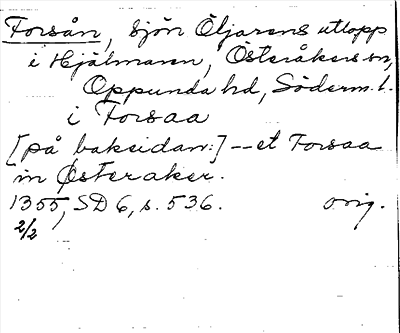 Forsån, sjön Öljarens utlopp
i Hjälmaren, Österåkers sn,
Oppunda hd, Söderm. l.
i Forsaa
[på baksidan:] -- et Forsaa
in Østeraker.
1355, SD 6, s. 536. orig.
2/2